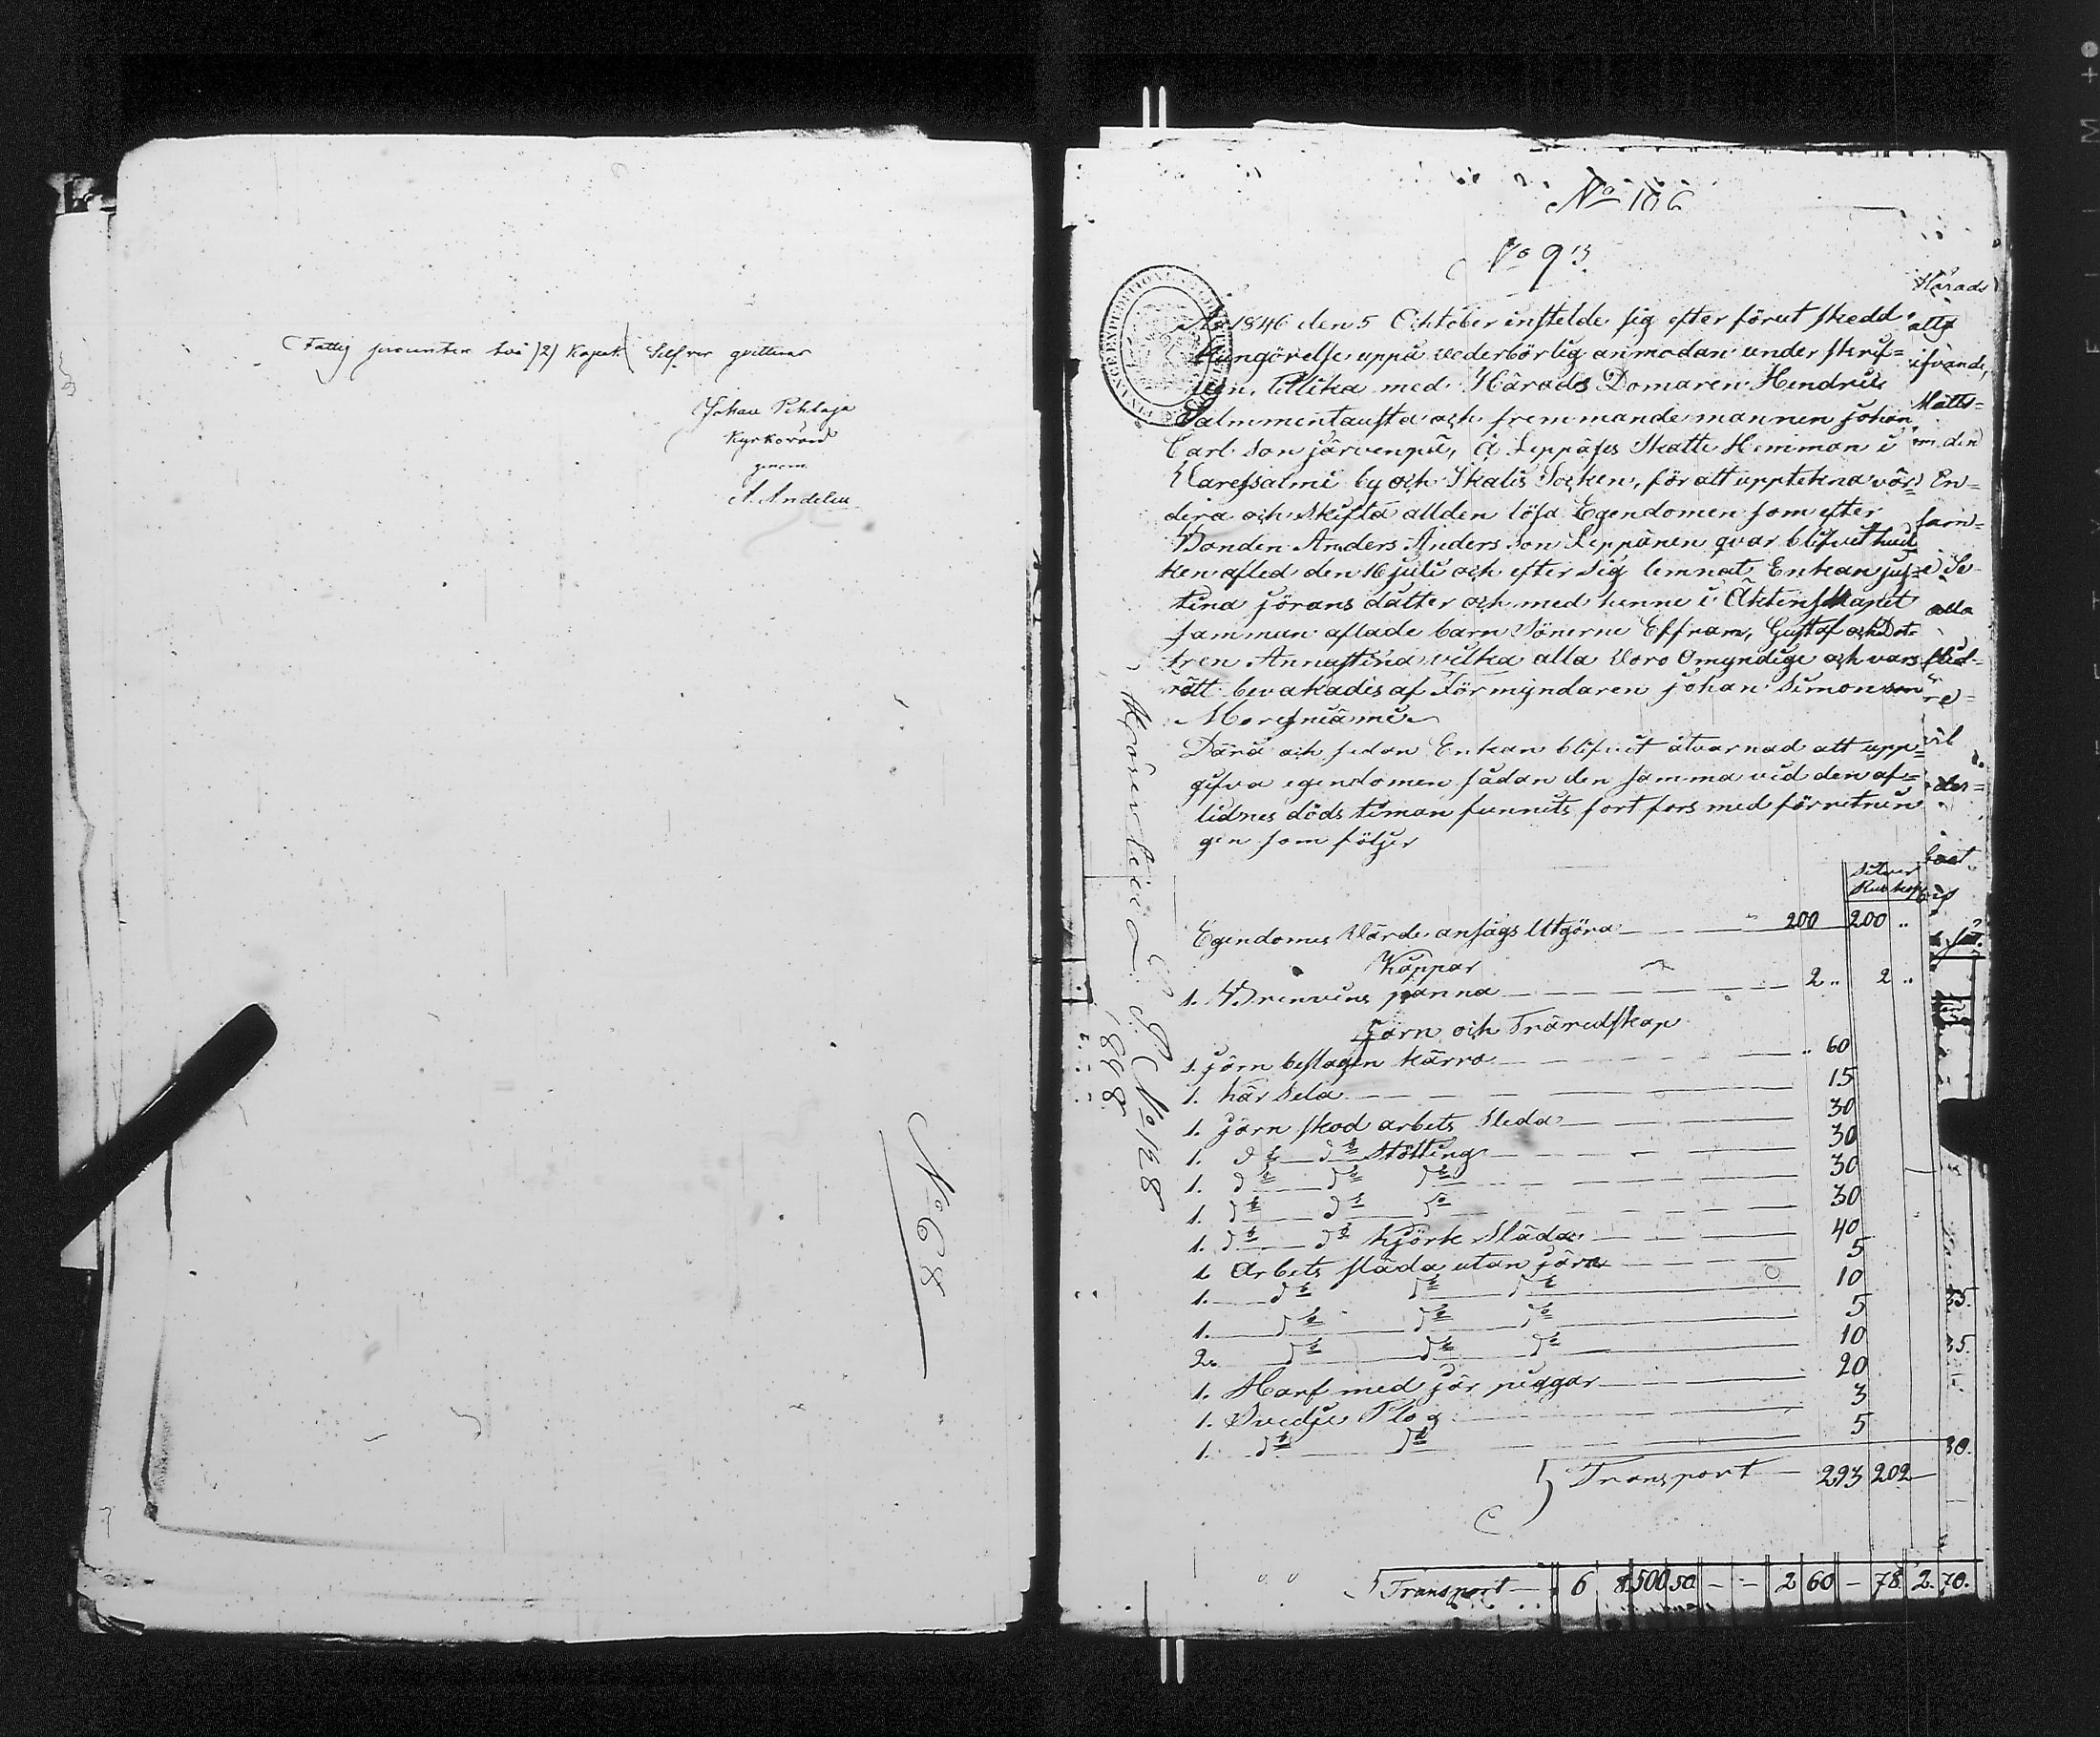 Fattig procenten två (2) Kopek Silfver qvitteras
Johan Pihlaja
Kyrkovärd
genom
A. Andelin
No 68
No 106
No 93
Ao 1846 den 5 Oktober instelde sig efter förut skedd
kungörelse uppå vederbörlig anmodan under skrif=
ten, tillika med Härads Domaren Hendrik
Salmmentausta och fremmande mannen Johan
Carl son Järvenpä, å Leppäses Skatte Hemman i
Karessalmi by och Ikalis Socken, för att upptekna vär=
dera och skifta all den lösa Egendomen som efter
Bonden Anders Anders son Leppänen qvar blifvet hvil
ken afled den 16 Juli och efter sig lemnat Enkan Jus=
tina Jörans dåtter och med henne i Äktenskapet
samman aflade barn Sönerne Effram, Gustaf och Dot
tren Annastina vilka alla voro Omyndige och vars
rätt bevakades af Förmyndaren Johan Simon son
Därå och sedan Enkan blifvet åtvarnad att upp=
gifva egendomen sådan den samma vid den af=
lidnes döds timan funnits fort fors med förretnin
gen som följer
Silver
Rub kop
Egendomes Värde ansågs Utgöra 200 200 ..
Kåppar
1. Brenvins panna 2 .. 2 ..
Järn och Träredskap
1. järn beslagen kärra .. 60
1. här Sela 15
1. järn skod arbets Sleda 30
1. do do Stötting 30
1. do do do 30
1. do do do 30
1. do do kyörk Släda 40
1 Arbets släda utan järn 5
1. do do do 10
1. do do do 5
2. do do do 10
1. Harf med jär piggar 20
1. Svedje Plog 3
1. do do 5
Transport 293 202
Transport 6 8 500 50 - - 2 60 - 78 2. 70.
No 128
1888
Härads
Matts=
om den
En=
alla
35.
35.
30.